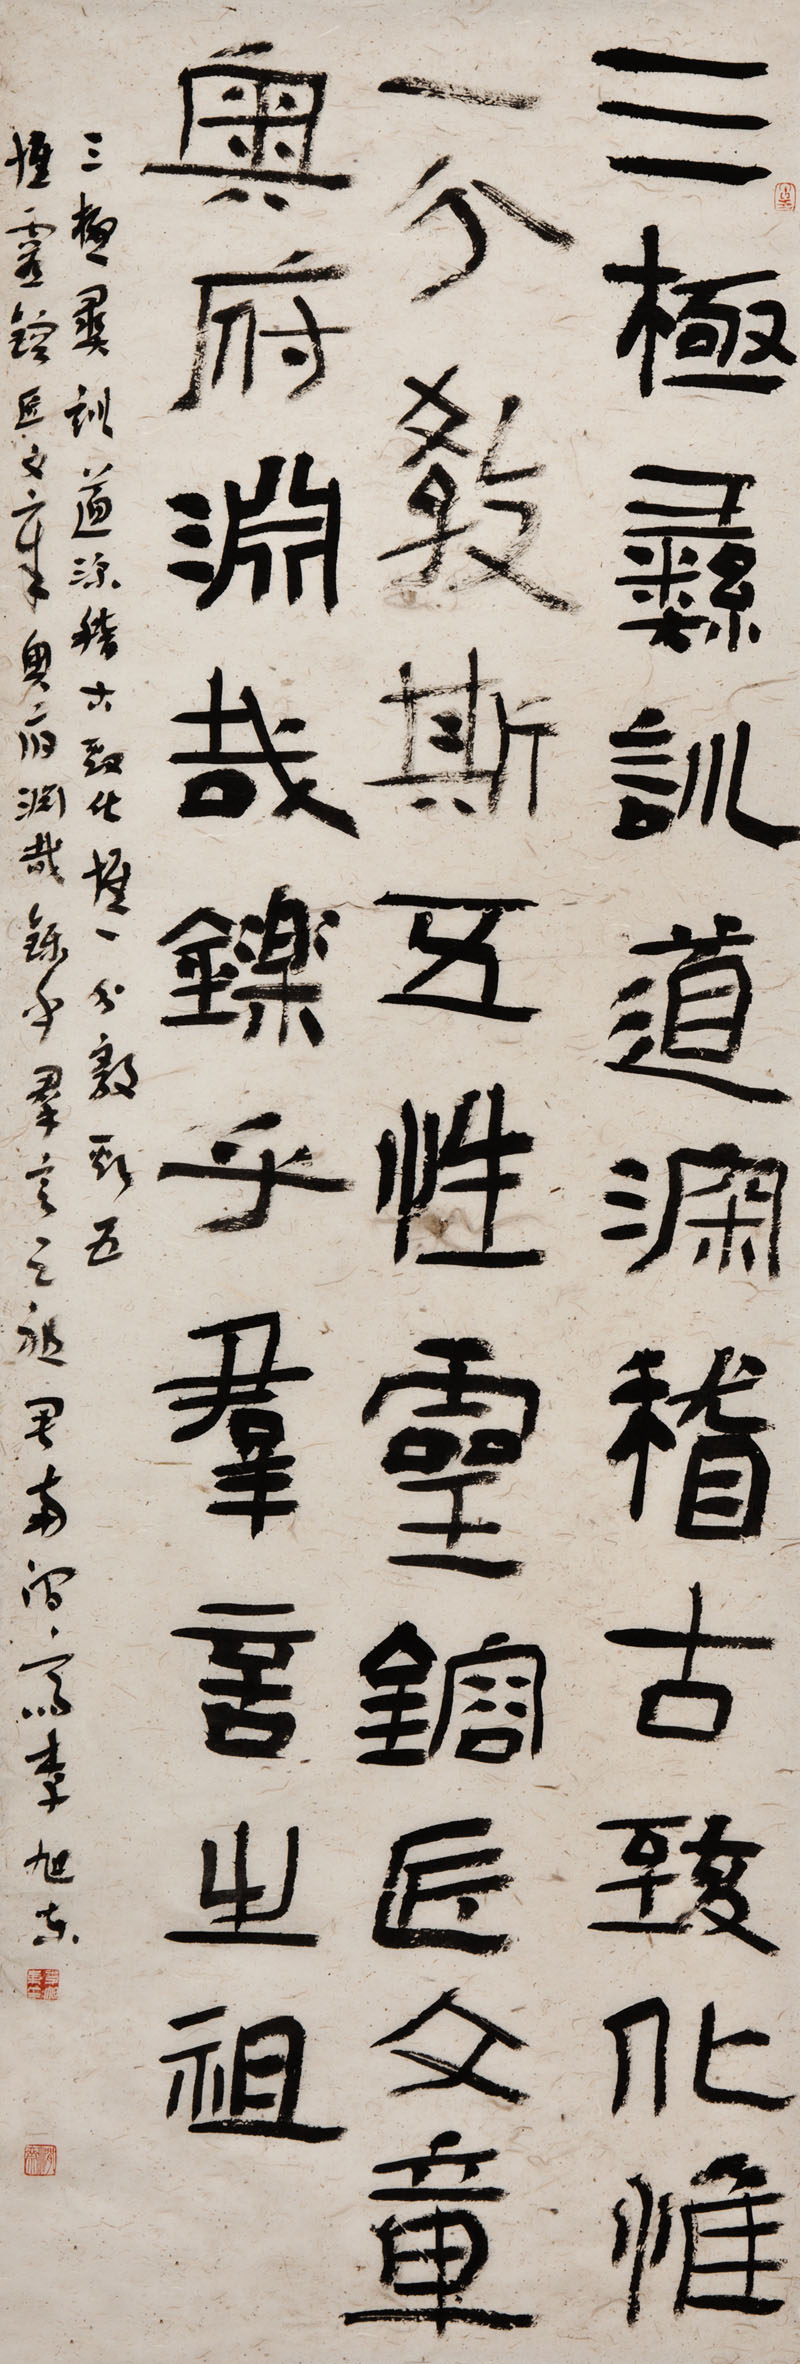 三極彝訓道深稽古致化惟
一分教斯五性靈鎔匠文章
奧府淵哉鑠乎羣言之祖
三極彝訓道深稽古致化惟一分教斯五
性靈鎔匠文章奧府淵哉鑠乎羣言之祖 李旭东